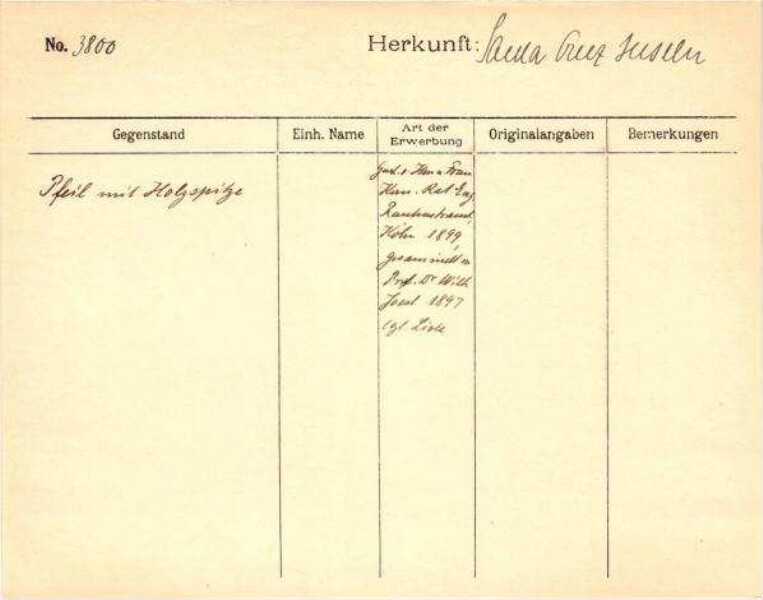 No. 3800
Herkunft: Santa Cruz Inseln
Gegenstand
Einh. Name
Art der
Erwerbung
Originalangaben
Bemerkungen
Pfeil mit Holzspitze
v. Herrn u. Frau
Kom. Rat Eug.
Rautenstrauch,
Köln 1899,
gesammelt v.
Prof. Dr Wilh.
Joest 1897
cfr Liste